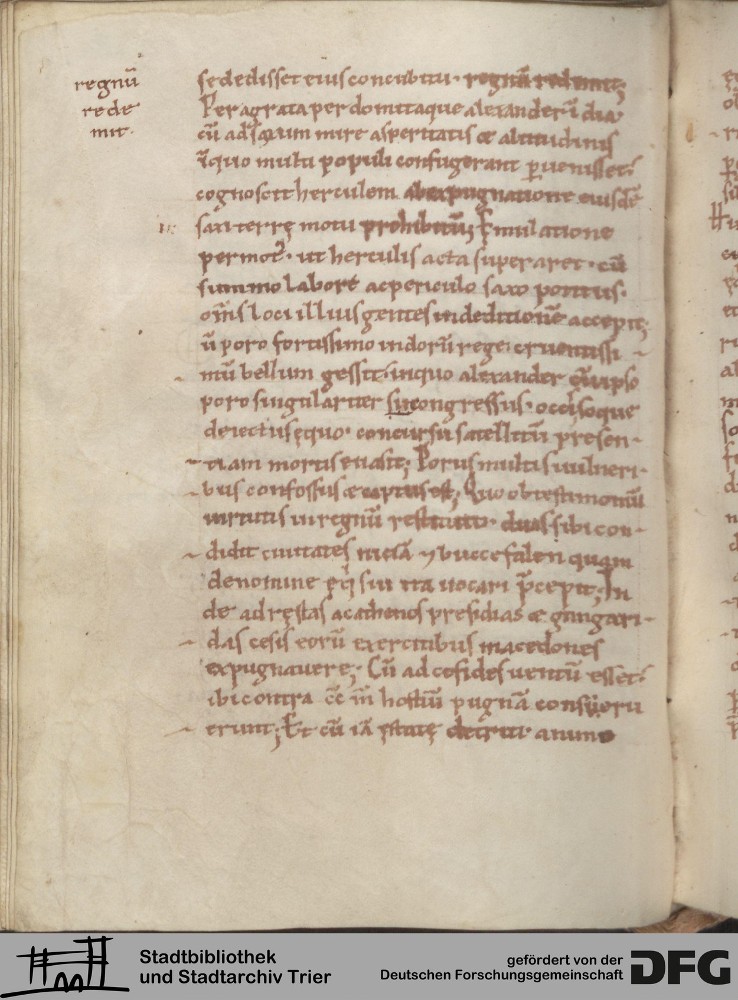 regnū
rede
mit.
se dedisset eius concubitu. regnū redemit;
Peragrata perdomitaque alexander ī dia.
cū ad saxum mire asperitatis & altitudinis
ī quo multi populi confugerant puenisset:
cognoscit herculem ab expugnatione eiusdē
saxi terrę motu prohibitū; Emulatione
permot. ut herculis acta superaret. cū
summo labore ac periculo saxo potitus.
om̄s loci illius gentes in deditionē accepit;
ū poro fortissimo indorū rege. cruentissi
mū bellum gessit. in quo alexander cū ipso
poro singulariter congressus. occisoque
deiectus equo. concursu satellitū presen
tiam mortis euasit; Porus multis uulneri
bus confossus & captus est; Quo ob testimoniū
uirtutis in regnū restituto. duas sibi con
didit ciuitates niciā ⁊ buccefalen quam
de nomine eq̇ sui ita uocari p̄cepit; In
de adrestas acathenos presidias & gangari
das cesis eorū exercitibus macedones
expugnauere; Cū ad cofides uentū esset:
ibi contra cc m̄ hostiū pugnā
erunt; Et cū iā ętate detriti animo
Stadtbibliothek
und Stadtarchiv Trier
gefördert von der
Deutschen Forschungsgemeinschaft
DFG